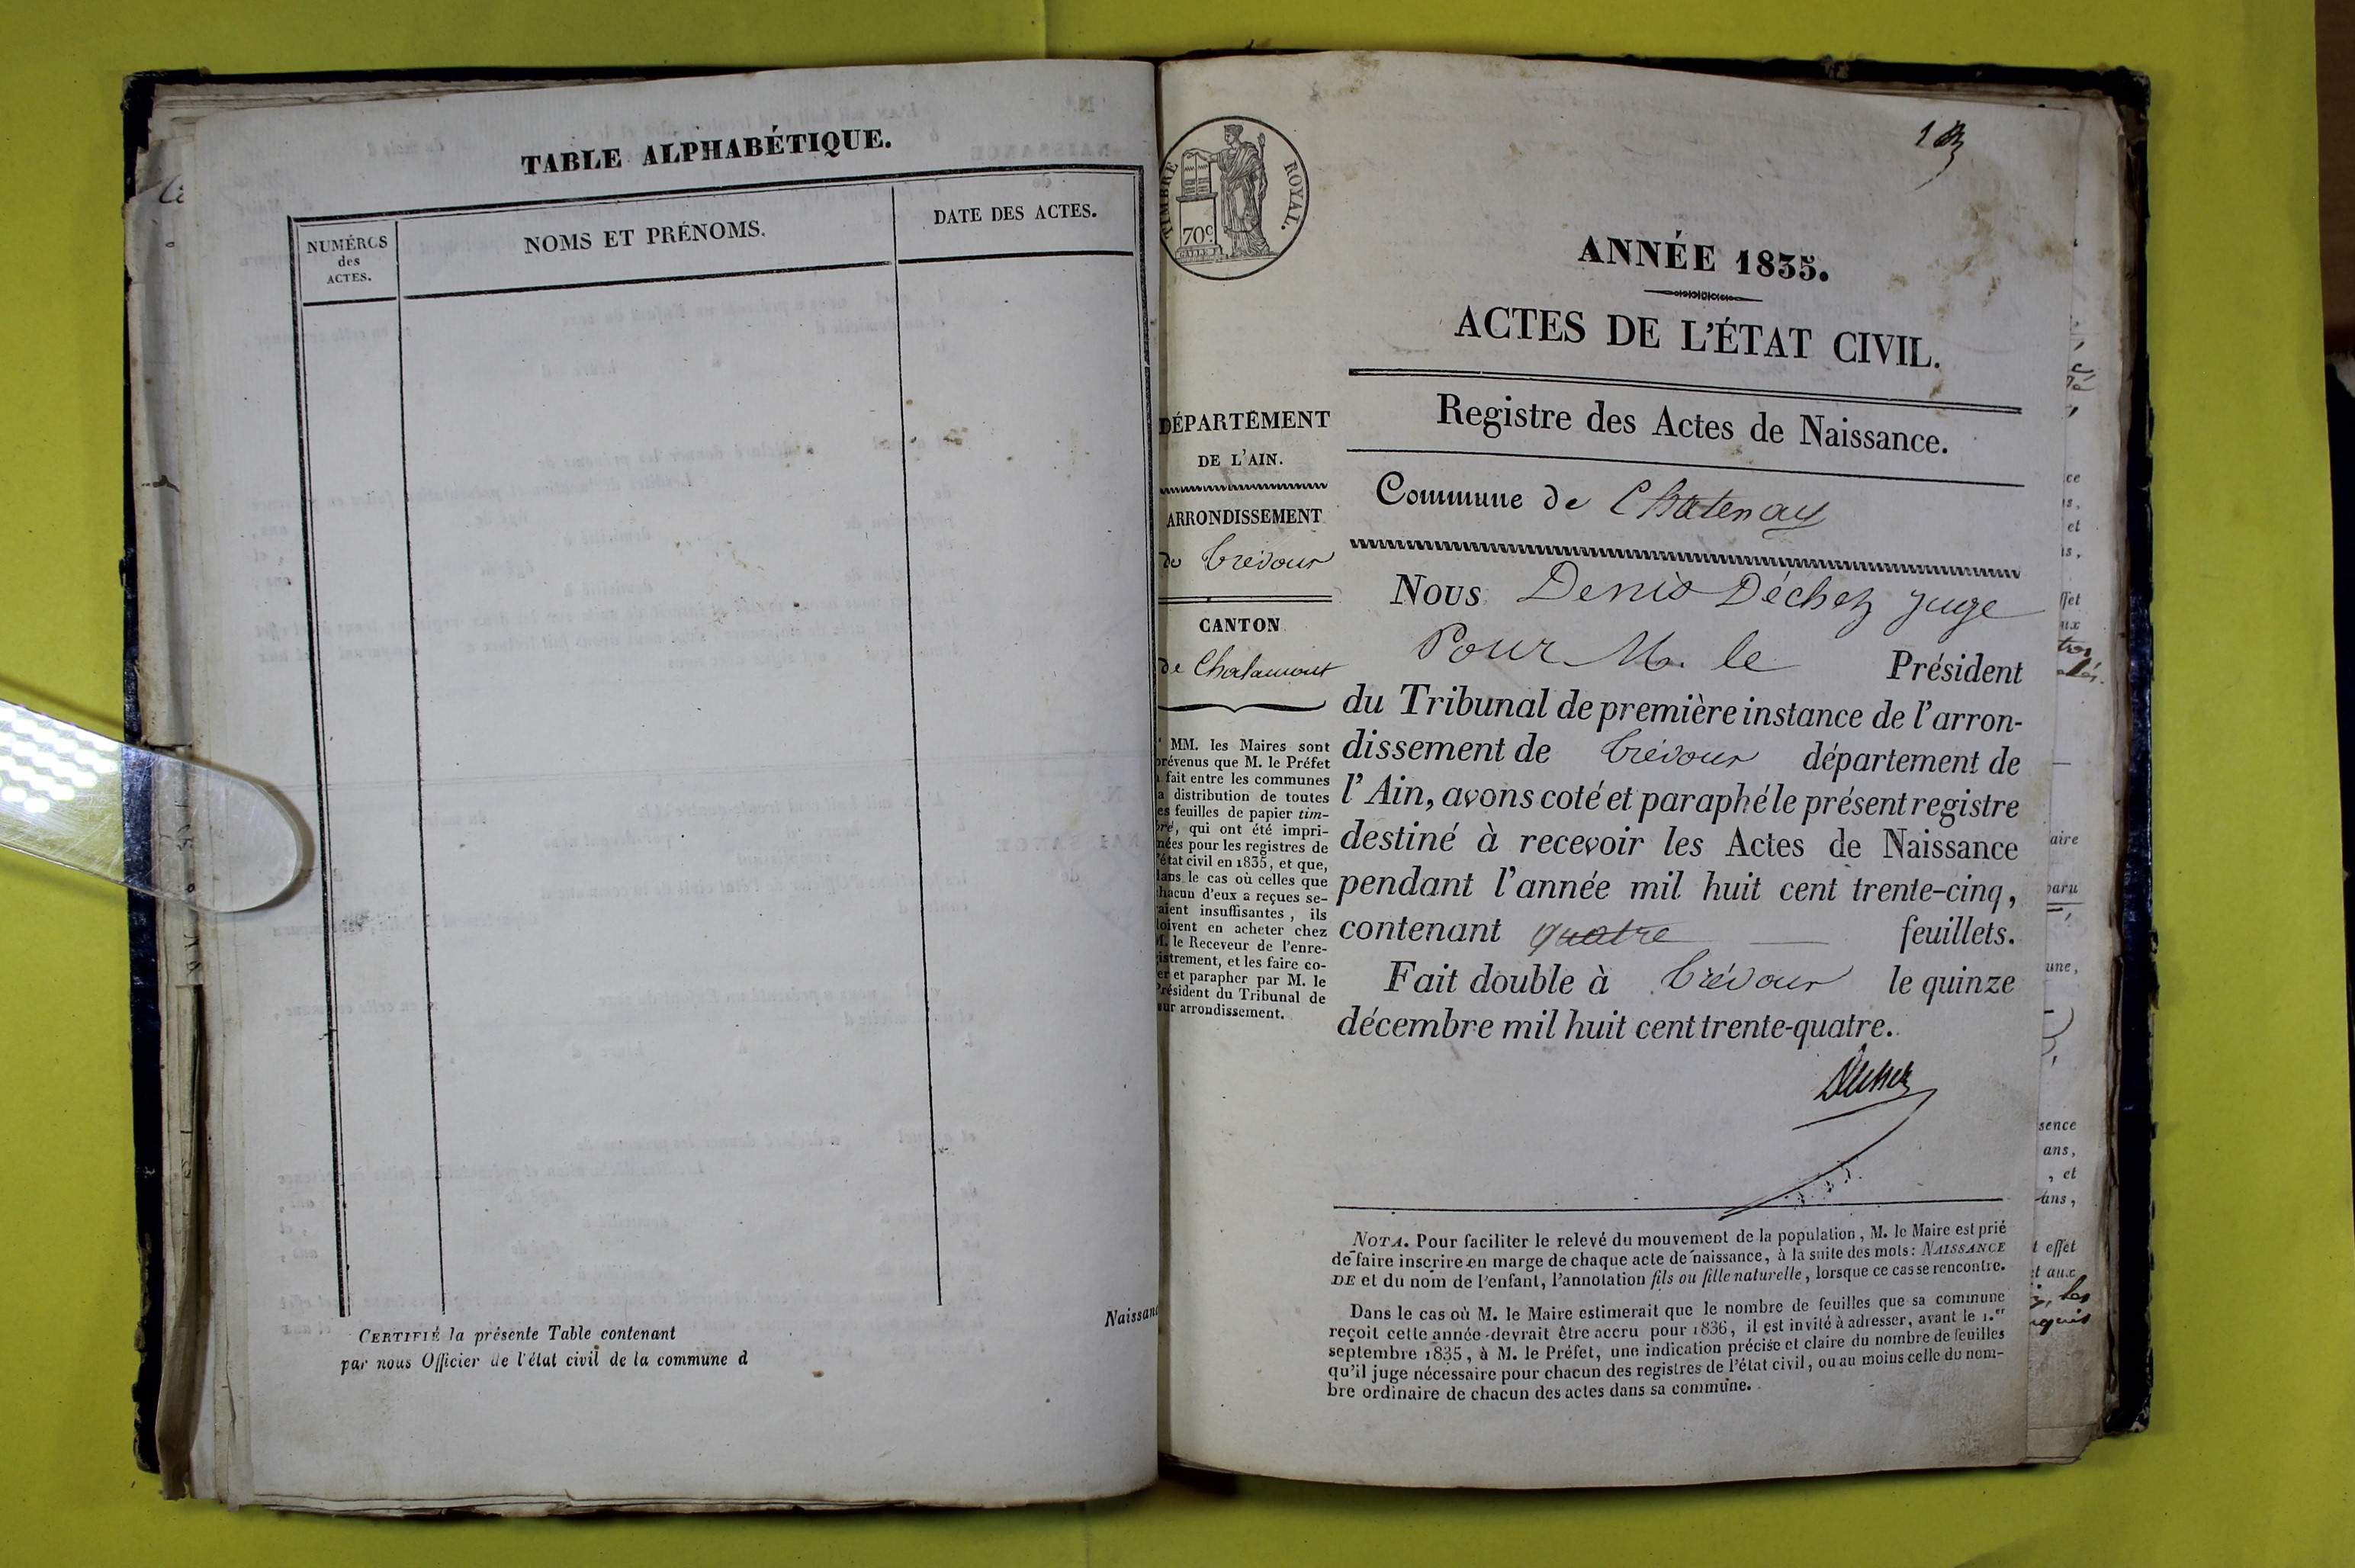 TABLE ALPHABÉTIQUE.
NUMÉROS
des
ACTES.
NOMS ET PRÉNOMS.
DATE DES ACTES.
CERTIFIÉ la présente Table contenant
par nous Officier de l'état civil de la commune d
Naissanc
TIMBRE ROYAL.
70c
ANNÉE 1835.
ACTES DE L'ÉTAT CIVIL.
Registre des Actes de Naissance.
Commune de Chatenay
DÉPARTEMENT
DE L'AIN.
ARRONDISSEMENT
de trévoux
CANTON
de Chalamont
MM. les Maires sont
prévenus que M. le Préfet
a fait entre les communes
la distribution de toutes
les feuilles de papier tim-
bré, qui ont été impri-
mées pour les registres de
l'état civil en 1835, et que,
dans le cas où celles que
chacun d'eux a reçues se-
raient insuffisantes, ils
doivent en acheter chez
M. le Receveur de l'enre-
gistrement, et les faire co-
ter et parapher par M. le
Président du Tribunal de
leur arrondissement.
NOUS Denis Déchez juge
Pour M. le Président
du Tribunal de première instance de l'arron-
dissement de trévoux département de
l'Ain, avons coté et paraphé le présent registre
destiné à recevoir les Actes de Naissance
pendant l'année mil huit cent trente-cinq,
contenant quatre feuillets.
Fait double à trévoux le quinze
décembre mil huit cent trente-quatre.
Déchez
NOTA. Pour faciliter le relevé du mouvement de la population, M. le Maire est prié
de faire inscrire en marge de chaque acte de naissance, à la suite des mots: NAISSANCE
DE et du nom de l'enfant, l'annotation fils ou fille naturelle, lorsque ce cas se rencontre.
Dans le cas où M. le Maire estimerait que le nombre de feuilles que sa commune
reçoit cette année devrait être accru pour 1836, il est invité à adresser, avant le 1.er
septembre 1835, à M. le Préfet, une indication précise et claire du nombre de feuilles
qu'il juge nécessaire pour chacun des registres de l'état civil, ou au moins celle du nom-
bre ordinaire de chacun des actes dans sa commune.